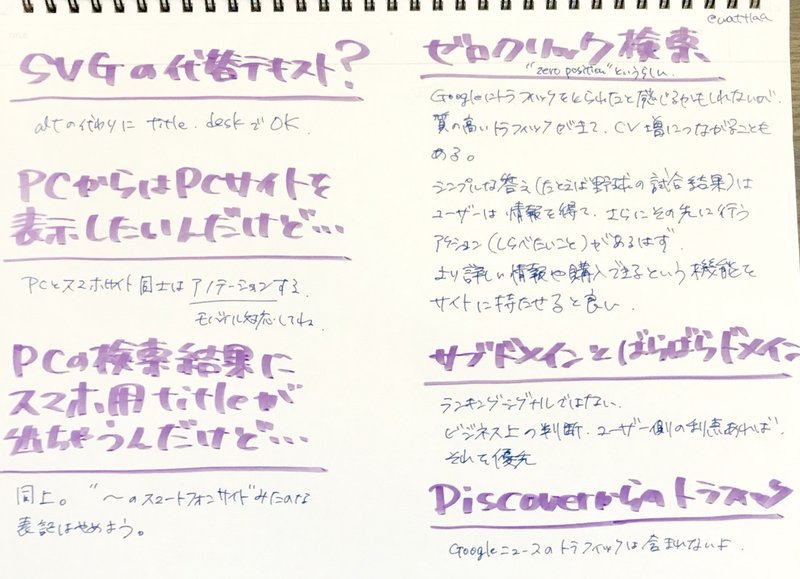 @wattlaa
SVGの代替テキスト?
altの代わりに title. deskでOK.
PCからはPCサイトを
表示したいんだけど…
PCとスマホサイト同士はアノテーションする.
モバイル対応してね
PCの検索結果に
スマホ用titleが
出ちゃうんだけど…
同上。"〜のスマートフォンサイド"みたいな
表記はやめよう。
ゼロクリック検索
"zero position"というらしい.
Googleにトラフィックをとられたと感じるかもしれないが.
質の高いトラフィックが出て、CV増につながることも
ある。
シンプルな答え(たとえば野球の試合結果)は
ユーザーは情報を得て、さらにその先に行う
アクション(しらべたいこと)があるはず.
より詳しい情報や購入できるという機能を
サイトに持たせると良い
サブドメインとばらばらドメイン
ランキングシグナルではない.
ビジネス上の判断. ユーザー側の利点あれば.
それを優先
Discoverからのトラフィック
Googleニュースのトラフィックは含まれないよ.